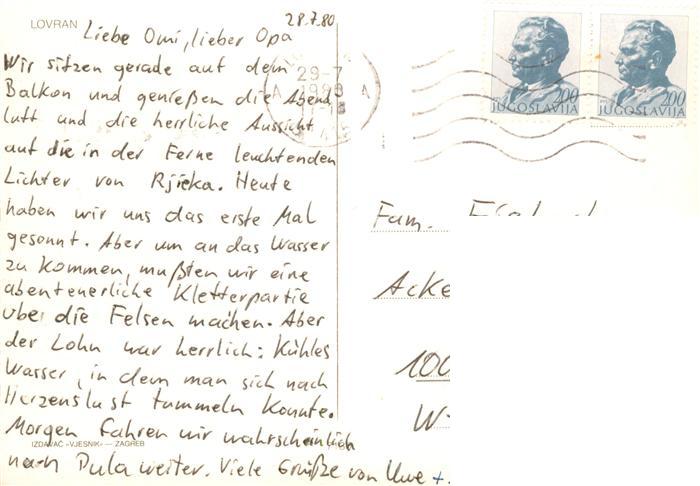 LOVRAN
28.7.80
Liebe Omi, lieber Opa
Wir sitzen gerade auf dem
Balkon und genießen die Abend
luft und die herrliche Aussicht
auf die in der Ferne leuchtenden
Lichter von Rjieka. Heute
haben wir uns das erste Mal
gesonnt. Aber um an das Wasser
zu kommen, mußten wir eine
abenteuerliche Kletterpartie
über die Felsen machen. Aber
der Lohn war herrlich: Kühles
Wasser, in dem man sich nach
Herzenslust tummeln konnte.
Morgen fahren wir wahrscheinlich
IZDAVAČ »VJESNIK« — ZAGREB
nach Pula weiter. Viele Grüße von Uwe +
29-7
200
JUGOSLAVIJA
200
JUGOSLAVIJA
Fam.
Acke
100
W-